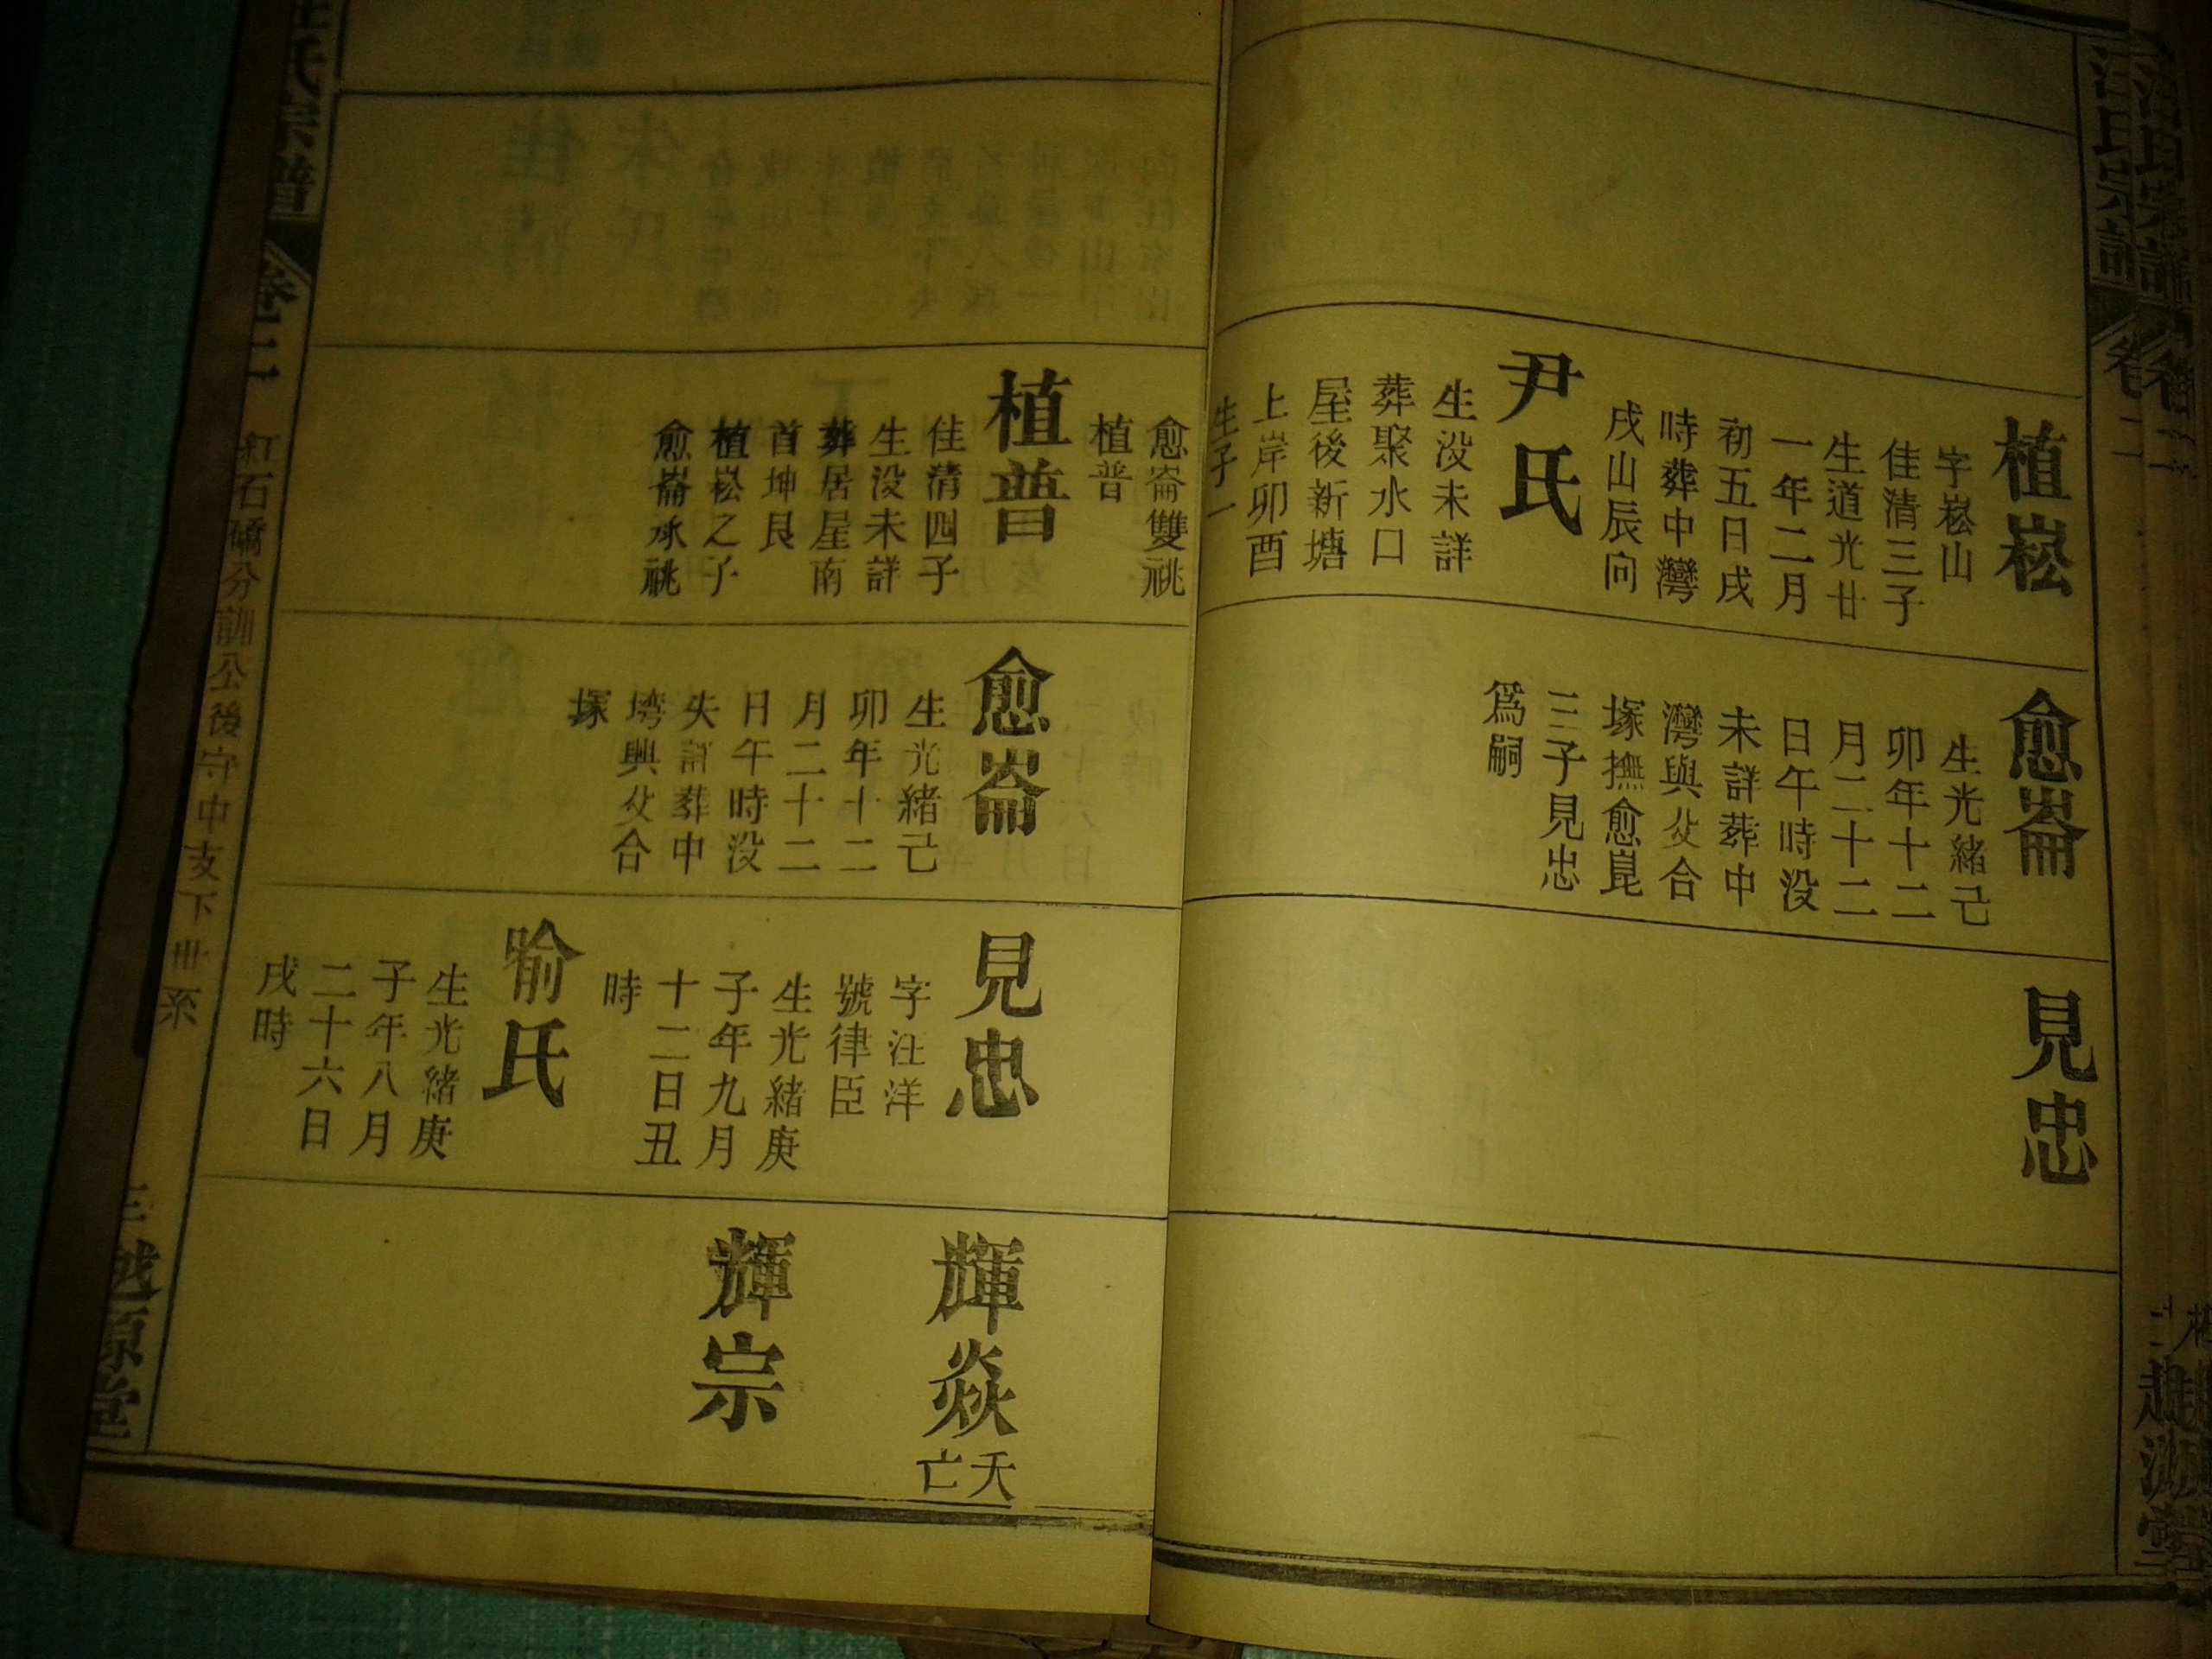 汪氏宗譜
卷二
植崧
字崧山
佳清三子
生道光廿
一年二月
初五日戌
時葬中灣
戌山辰向
尹氏
生没未詳
葬聚水口
屋後新塘
上岸卯酉
生子一
愈崙
生光緒己
卯年十二
月二十二
日午時没
未詳葬中
灣與父合
塚撫愈崑
三子見忠
爲嗣
見忠
愈崙雙祧
植普
植普
佳清四子
生没未詳
葬居星南
首坤艮
植崧之子
愈崙承祧
愈崙
生光緒己
卯年十二
月二十二
日午時没
失詳葬中
塆興父合
塚
見忠
字汪洋
號律臣
生光緒庚
子年九月
十二日丑
時
喻氏
生光緒庚
子年八月
二十六日
戌時
輝焱
天亡
輝宗
汪氏宗譜
卷二
紅石礄分訓公後守中支下卅系
越源堂